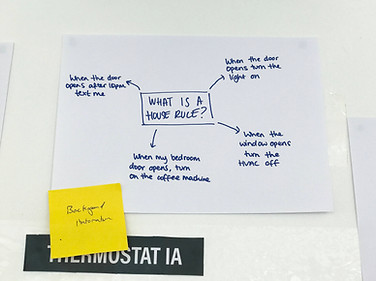 When the door
opens after 10pm
text me
When the door
opens turn the
light on
WHAT IS A
HOUSE RULE?
When my bedroom
door opens, turn
on the coffee machine
When the
window opens
turn the
HVAC off
Background
THERMOSTAT IA